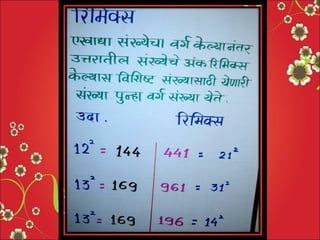 रिमिक्स
एखाद्या संख्येचा वर्ग केल्यानंतर
उत्तरातील संख्येचे अंक रिमिक्स
केल्यास विशिष्ट संख्यासाठी येणारी
संख्या पुन्हा वर्ग संख्या येते.
उदा. रिमिक्स
12² = 144 441 = 21²
13² = 169 961 = 31²
13² = 169 196 = 14²